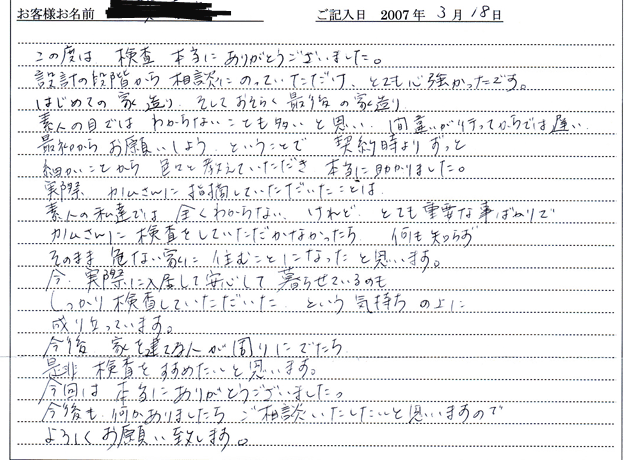 お客様お名前 ご記入日 2007年 3月 18日
この度は 検査 本当にありがとうございました。
設計の段階から 相談にのっていただけ、とても心強かったです。
はじめての家造り、そしておそらく最後の家造り
素人の目では わからないことも多いと思い、間違いが行ってからでは遅い、
最初からお願いしよう、ということで 契約時よりずっと
細かいことから 色々と教えていただき 本当に助かりました。
実際 カムさんに指摘していただいたことは、
素人の私達では 全くわからない、けれど、とても重要な事ばかりで
カムさんに 検査をしていただかなかったら 何も知らず
そのまま 危ない家に 住むことになったと思います。
今、実際に入居して安心して 暮らせているのも
しっかり検査していただいた という気持ちの上に
成り立っています。
今後 家を建てる人が周りにでたら
是非 検査をすすめたいと思います。
今回は 本当にありがとうございました。
今後も、何かありましたら ご相談いたしたいと思いますので
よろしくお願い致します。